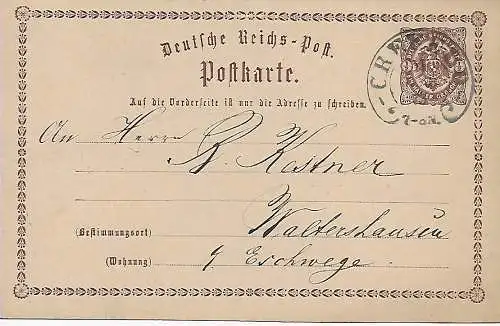 Deutsche Reichs-Post.
Postkarte.
Auf die Vorderseite ist nur die Adresse zu schreiben.
An Herrn
Kostner
Waltershausen
(Bestimmungsort)
(Wohnung) Eschwege
7-8N.